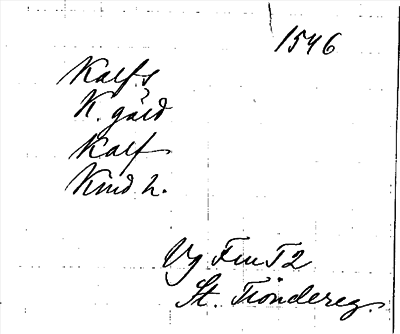 1546
Kalfs
K. gård
Kalf
Kind h.
Vg Fm T2
St. Tiondereg.